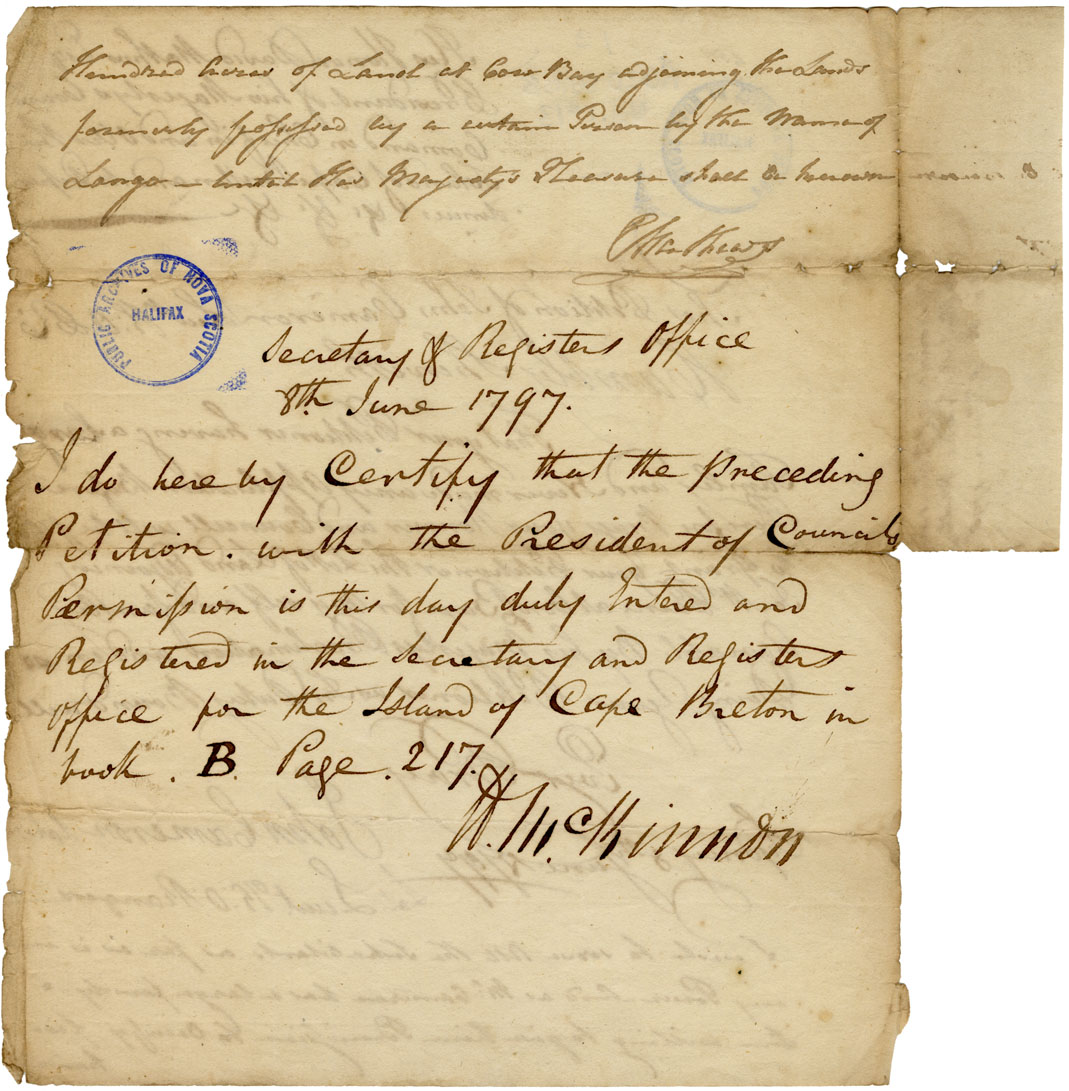 Hundred Acres of Land at Cow Bay adjoining the Lands
formerly possessed by a certain Person by the Name of
Longo – until His Majesty's Pleasure shall be known
D Mathews
PUBLIC ARCHIVES OF NOVA SCOTIA
HALIFAX
Secretary & Registers Office
8th June 1797.
I do hereby Certify that the preceding
Petition. with the President of Councils
Permission is this day duly Entered and
Registered in the Secretary and Registers
office for the Island of Cape Breton in
book. B. Page. 217.
W. McKinnon